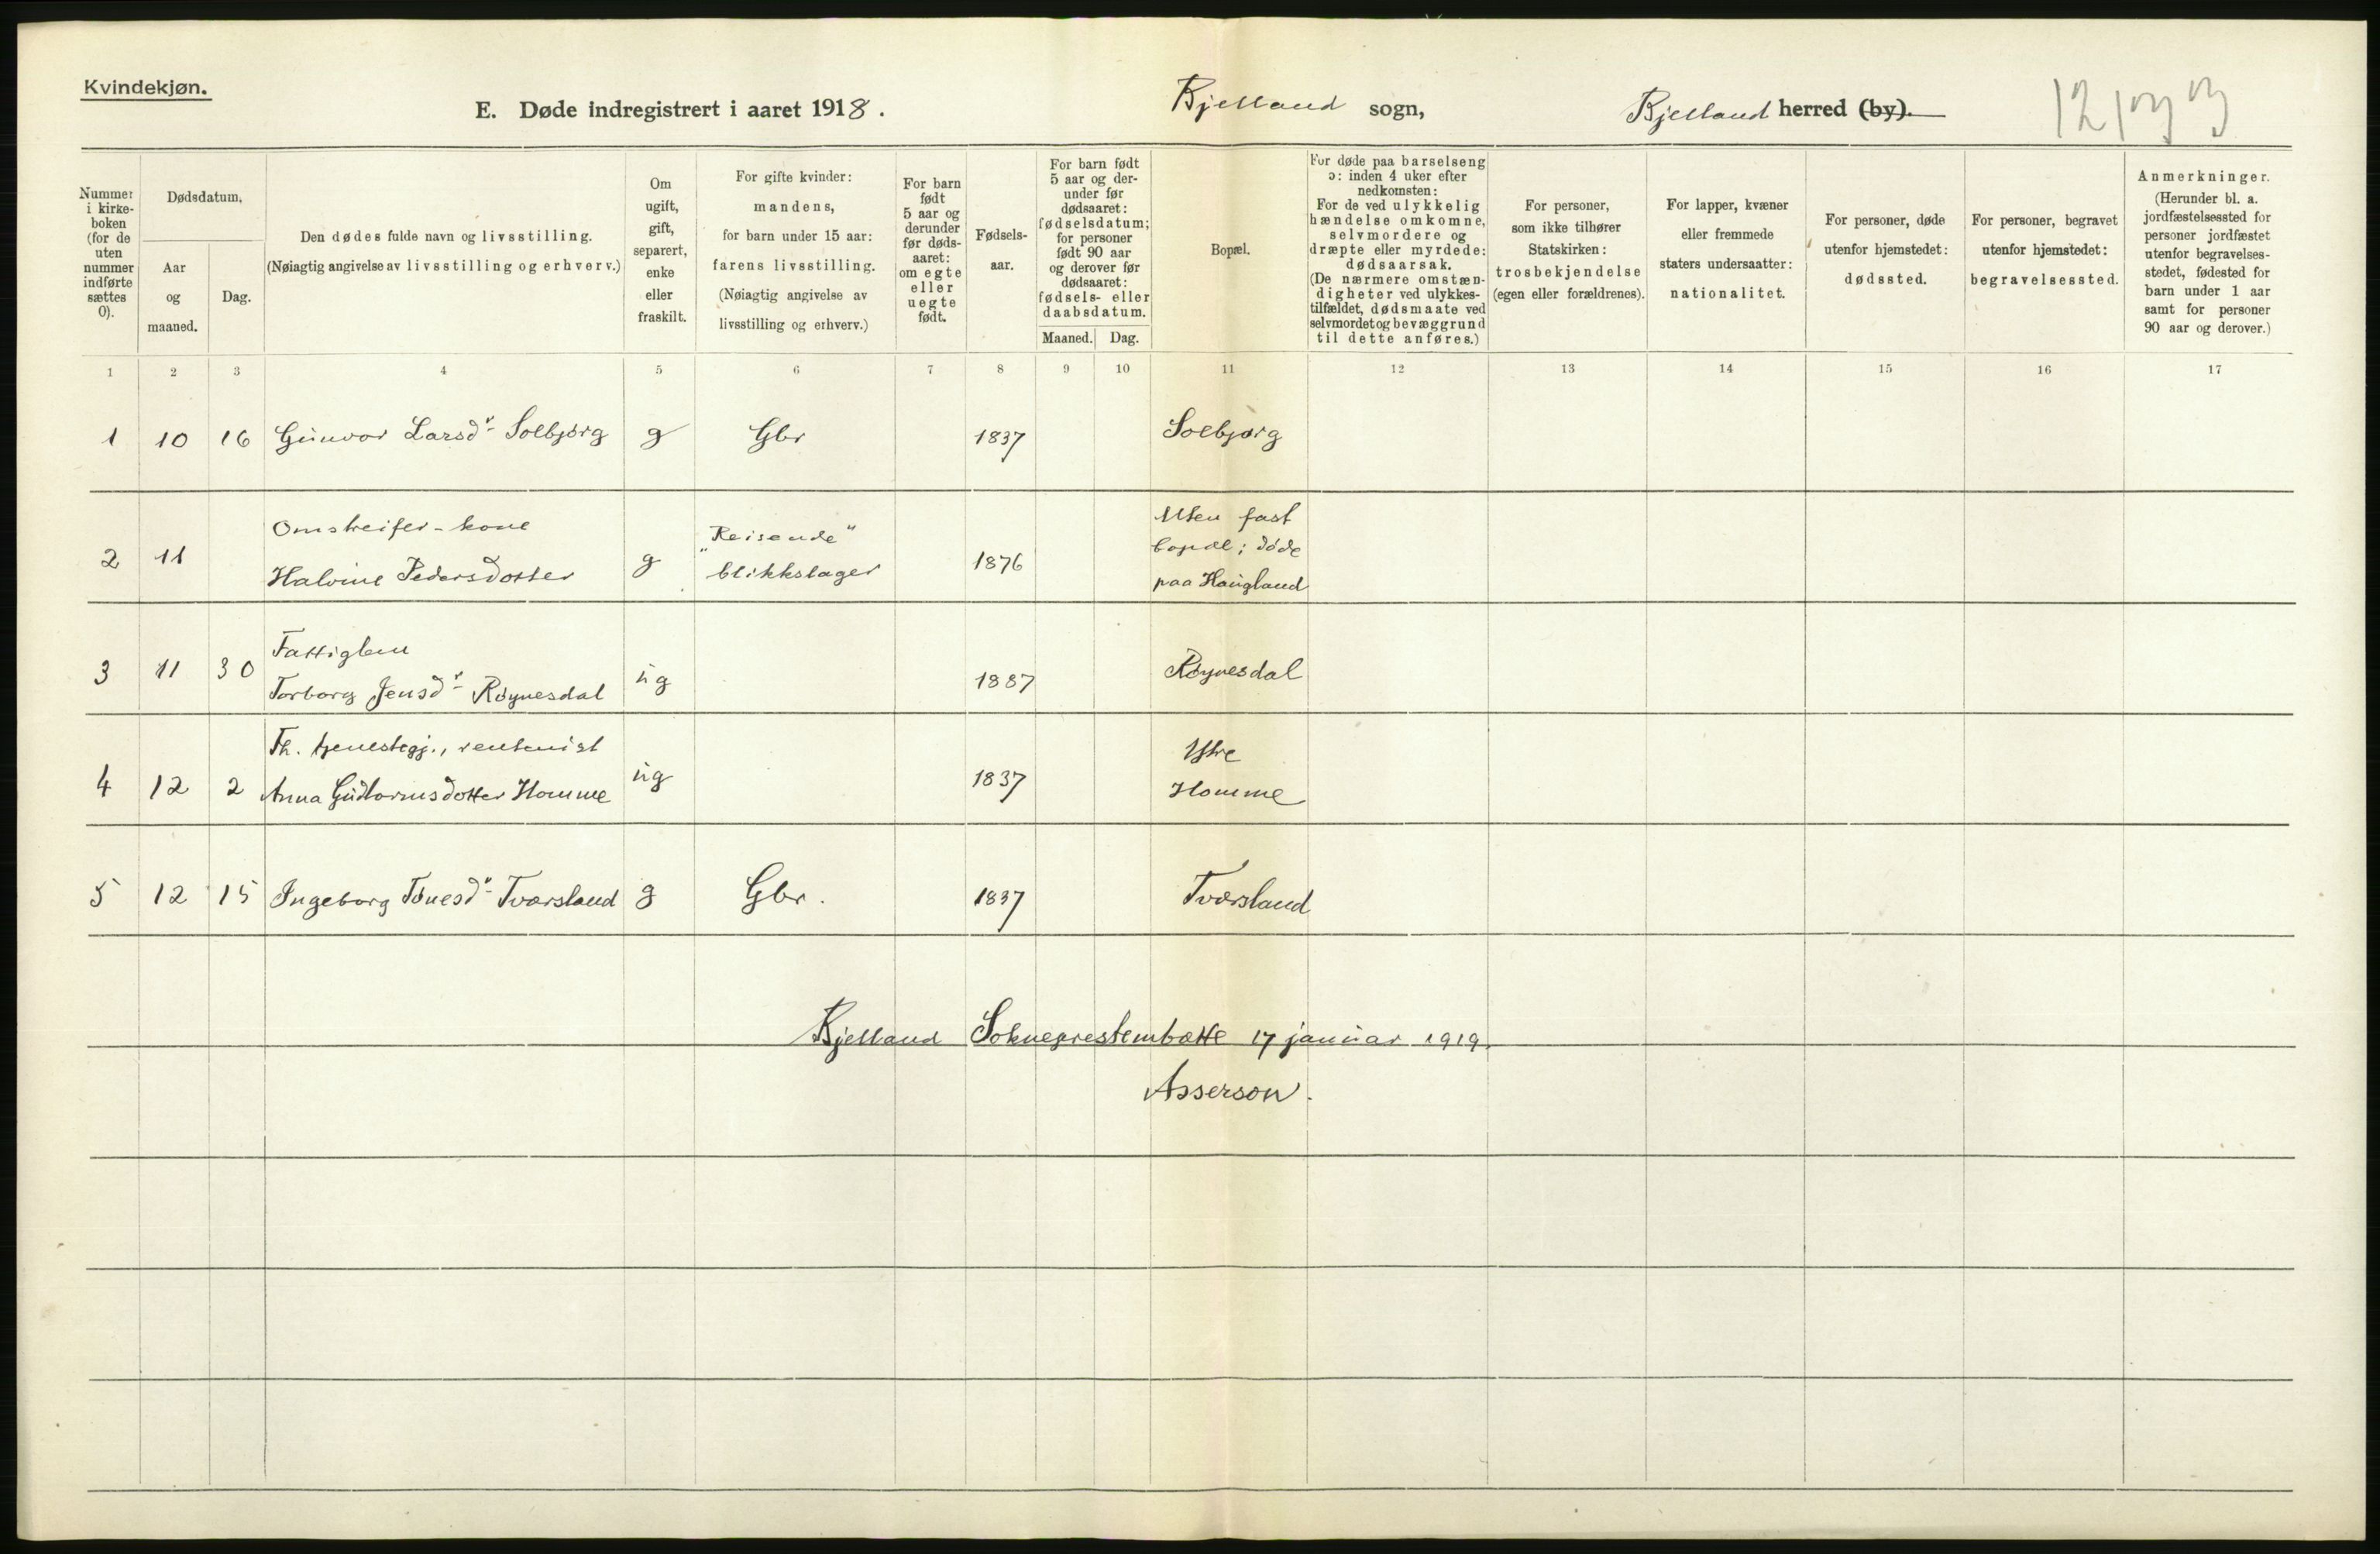 Kvindekjøn.
E. Døde indregistrert i aaret 1918.
Bjelland sogn,
Bjelland herred (by).
Nummer i kirke-boken (for de uten nummer indførte sættes 0).
Dødsdatum.
Aar og maaned.
Dag.
Den dødes fulde navn og livsstilling.
(Nøiagtig angivelse av livsstilling og erhverv.)
Om ugift, gift, separert, enke eller fraskilt.
For gifte kvinder: mandens, for barn under 15 aar: farens livsstilling. (Nøiagtig angivelse av livsstilling og erhverv.)
For barn født 5 aar og derunder før døds-aaret: om egte eller uegte født.
Fødsels-aar.
For barn født 5 aar og der-under før dødsaaret: fødselsdatum; for personer født 90 aar og derover før dødsaaret: fødsels- eller daabsdatum.
Maaned.
Dag.
Bopæl.
For døde paa barselseng ɔ: inden 4 uker efter nedkomsten: For de ved ulykkelig hændelse omkomne, selvmordere og dræpte eller myrdede: dødsaarsak. (De nærmere omstæn-digheter ved ulykkes-tilfældet, dødsmaate ved selvmordet og bevæggrund til dette anføres.)
For personer, som ikke tilhører Statskirken: trosbekjendelse (egen eller forældrenes).
For lapper, kvæner eller fremmede staters undersaatter: nationalitet.
For personer, døde utenfor hjemstedet: dødssted.
For personer, begravet utenfor hjemstedet: begravelsessted.
Anmerkninger. (Herunder bl. a. jordfæstelsessted for personer jordfæstet utenfor begravelses-stedet, fødested for barn under 1 aar samt for personer 90 aar og derover.)
1 2 3 4 5 6 7 8 9 10 11 12 13 14 15 16 17
1 10 16 Gunvor Larsdr Solbjørg g Gbr 1837 Solbjørg
Omstreifer-kone „Reisende" Uten fast
bopæl; døde
2 11 Halvine Pedersdotter g blikkslager 1876 paa Haugland
Fattiglem
3 11 30 Torborg Jensdr Røynesdal ug 1887 Røynesdal
Fh. tjenestegj., rentenist Ytre
4 12 2 Anna Gudtormsdotter Homme ug 1837 Homme
5 12 15 Ingeborg Tønesdr Tværsland g Gbr. 1837 Tværsland
Bjelland Sokneprestembætte 17 januar 1919.
Asserson.